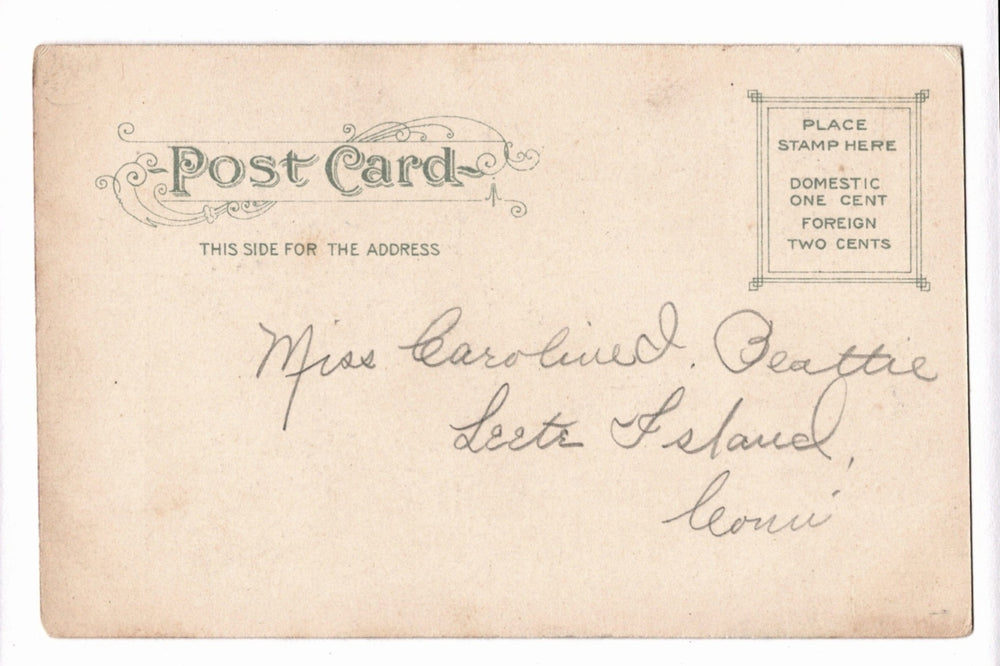 Post Card
THIS SIDE FOR THE ADDRESS
PLACE
STAMP HERE
DOMESTIC
ONE CENT
FOREIGN
TWO CENTS
Miss Caroline I. Beattie
Leete Island,
Conn